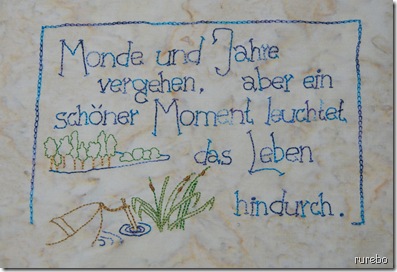 Monde und Jahre
vergehen, aber ein
schöner Moment leuchtet
das Leben
hindurch.
rurebo